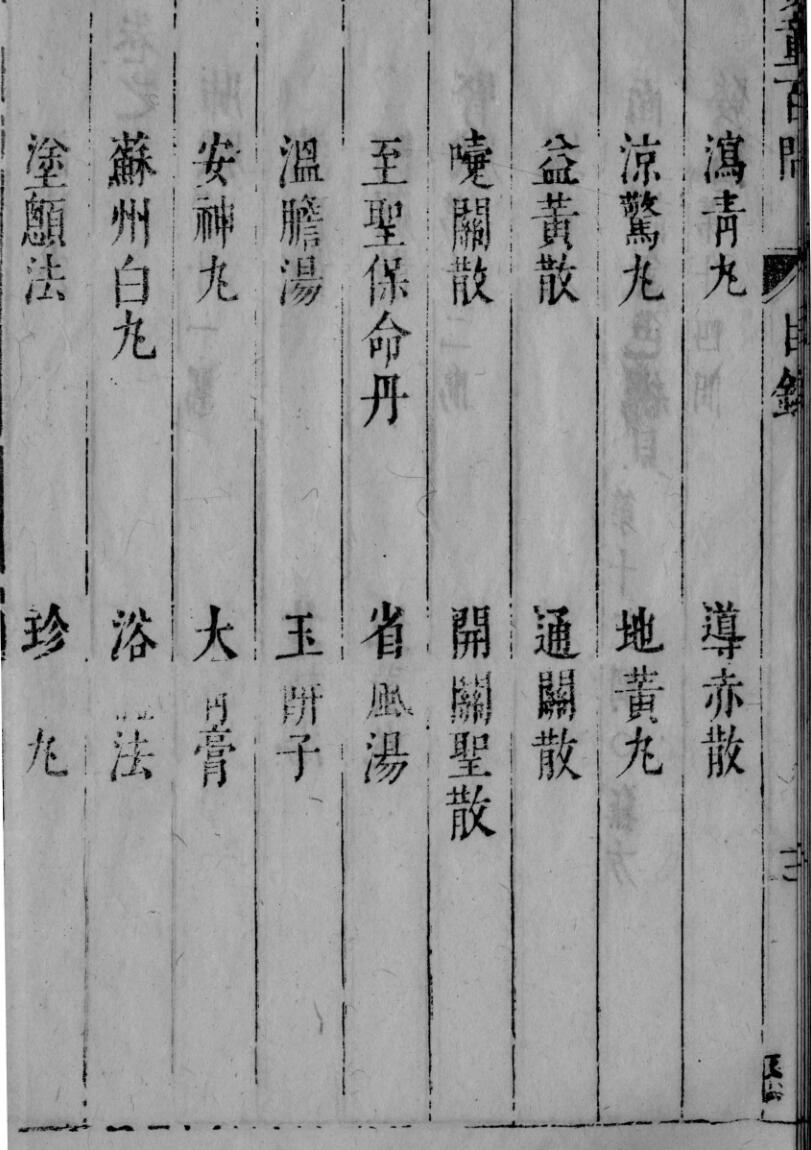 童百問 目錄 三
瀉青丸 導赤散
涼驚丸 地黃丸
益黃散 通關散
嚏關散 開關聖散
至聖保命丹 省風湯
溫膽湯 玉子
安神丸 大青膏
蘇州白丸 浴法
塗顖法 珍丸